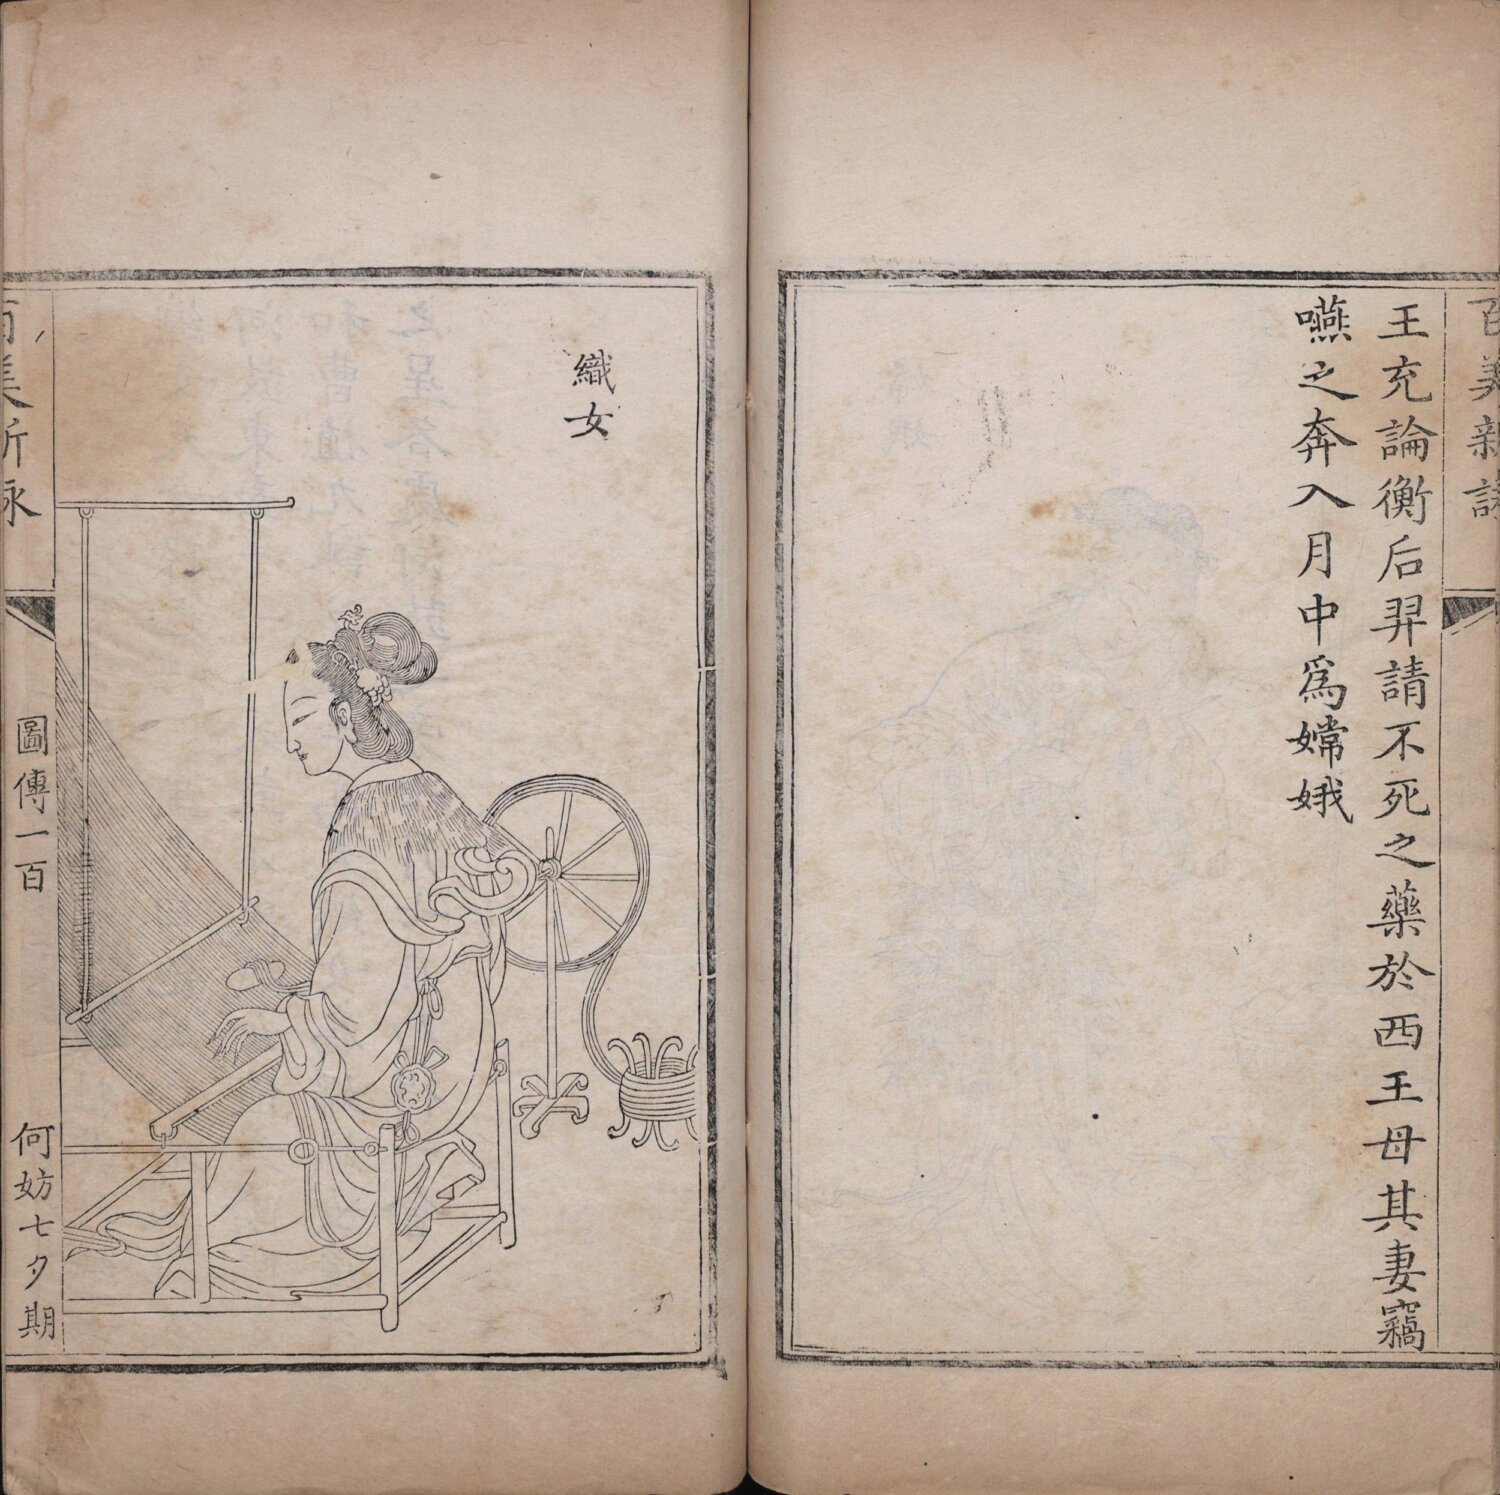 王充論衡后羿請不死之藥於西王母其妻竊
嚥之奔入月中爲嫦娥
織女
圖傳一百
何妨七夕期